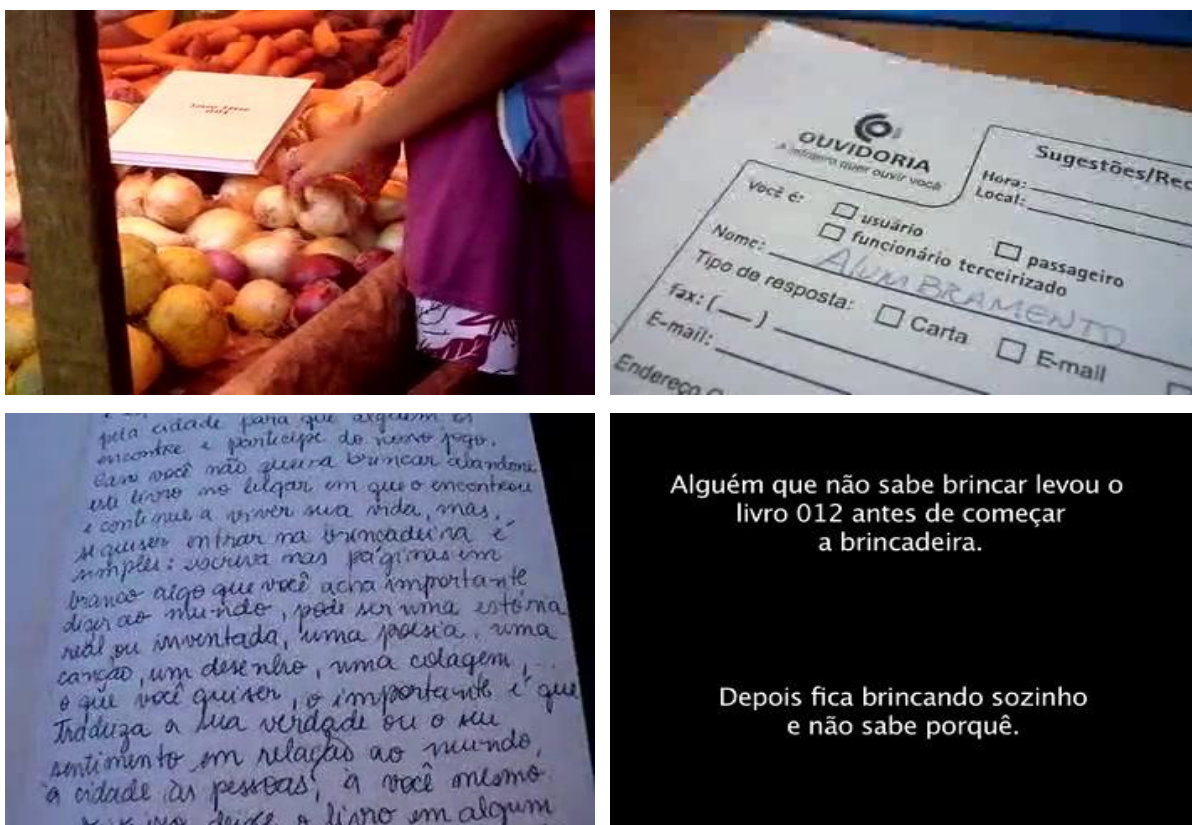 001
OUVIDORIA
A Infraero quer ouvir você
Sugestões/Rec
Hora:
Local:
Você é:
usuário
passageiro
funcionário terceirizado
Nome: ALUMBRAMENTO
Tipo de resposta:
Carta
E-mail
fax: ( )
E-mail:
Endereço
pela cidade para que alguém os
encontre e participe do nosso jogo.
Caso você não queira brincar abandone
este livro no lugar em que o encontrou
e continue a viver sua vida, mas,
se quiser entrar na brincadeira é
simples: escreva nas páginas em
branco algo que você acha importante
dizer ao mundo, pode ser uma estória
real ou inventada, uma poesia, uma
canção, um desenho, uma colagem,...
o que você quiser, o importante é que
traduza a sua verdade ou o seu
sentimento em relação ao mundo,
à cidade às pessoas, à você mesmo
deixe o livro em algum
Alguém que não sabe brincar levou o
livro 012 antes de começar
a brincadeira.
Depois fica brincando sozinho
e não sabe porquê.